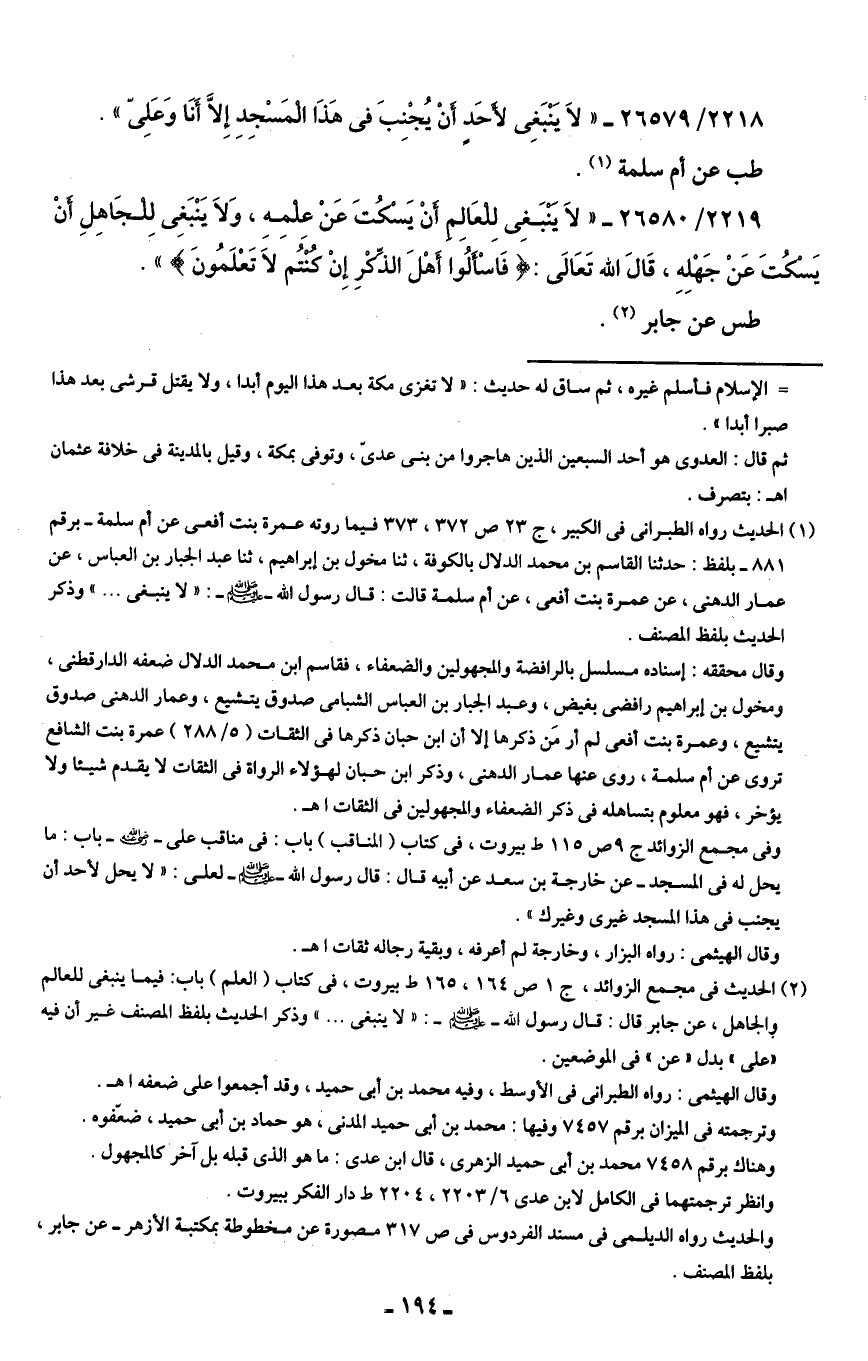 ٢٢١٨/ ٢٦٥٧٩ ـ « لاَ يَنْبَغِى لأَحَدٍ أَنْ يُجْنِبَ فى هَذَا الْمَسْجِدِ إِلاَّ أَنَا وَعَلِىّ » .
طب عن أم سلمة (١) .
٢٢١٩/ ٢٦٥٨٠ ـ « لاَ يَنْبَغِى لِلعَالِمِ أَنْ يَسْكُتَ عَنْ عِلْمِهِ ، وَلاَ يَنْبَغِى لِلْجَاهِلِ أَنْ
يَسْكُتَ عَنْ جَهْلِهِ ، قَالَ الله تَعَالَى : ﴿ فَاسْأَلُوا أَهْلَ الذِّكْرِ إِنْ كُنْتُم لاَ تَعْلَمُونَ ﴾ » .
طس عن جابر (٢) .
= الإسلام فأسلم غيره ، ثم ساق له حديث : « لا تغزى مكة بعد هذا اليوم أبدا ، ولا يقتل قرشى بعد هذا
صبرا أبدا » .
ثم قال : العدوى هو أحد السبعين الذين هاجروا من بنى عدىّ ، وتوفى بمكة ، وقيل بالمدينة فى خلافة عثمان
اهـ : بتصرف .
(١) الحديث رواه الطبرانى فى الكبير ، ج ٢٣ ص ٣٧٢ ، ٣٧٣ فيما روته عمرة بنت أفعى عن أم سلمة ـ برقم
٨٨١ ـ بلفظ : حدثنا القاسم بن محمد الدلال بالكوفة ، ثنا مخول بن إبراهيم ، ثنا عبد الجبار بن العباس ، عن
عمار الدهنى ، عن عمرة بنت أفعى ، عن أم سلمة قالت : قال رسول الله ـ ﷺ ـ : « لا ينبغى ... » وذكر
الحديث بلفظ المصنف .
وقال محققه : إسناده مسلسل بالرافضة والمجهولين والضعفاء ، فقاسم ابن محمد الدلال ضعفه الدارقطنى ،
ومخول بن إبراهيم رافضى بغيض ، وعبد الجبار بن العباس الشبامى صدوق يتشيع ، وعمار الدهنى صدوق
يتشيع ، وعمرة بنت أفعى لم أر مَن ذكرها إلا أن ابن حبان ذكرها فى الثقات ( ٥/ ٢٨٨ ) عمرة بنت الشافع
تروى عن أم سلمة ، روى عنها عمار الدهنى ، وذكر ابن حبان لهؤلاء الرواة فى الثقات لا يقدم شيئا ولا
يؤخر ، فهو معلوم بتساهله فى ذكر الضعفاء والمجهولين فى الثقات اهـ .
وفى مجمع الزوائد ج ٩ ص ١١٥ ط بيروت ، فى كتاب ( المناقب ) باب : فى مناقب على ـ رضي الله عنه ـ باب : ما
يحل له فى المسجد ـ عن خارجة بن سعد عن أبيه قال : قال رسول الله ـ ﷺ ـ لعلى : « لا يحل لأحد أن
يجنب فى هذا المسجد غيرى وغيرك » .
وقال الهيثمى : رواه البزار ، وخارجة لم أعرفه ، وبقية رجاله ثقات اهـ .
(٢) الحديث فى مجمع الزوائد ، ج ١ ص ١٦٤ ، ١٦٥ ط بيروت ، فى كتاب ( العلم ) باب: فيما ينبغى للعالم
والجاهل ، عن جابر قال : قال رسول الله ـ ﷺ ـ : « لا ينبغى ... » وذكر الحديث بلفظ المصنف غير أن فيه
«على » بدل « عن » فى الموضعين .
وقال الهيثمى : رواه الطبرانى فى الأوسط ، وفيه محمد بن أبى حميد ، وقد أجمعوا على ضعفه اهـ .
وترجمته فى الميزان برقم ٧٤٥٧ وفيها : محمد بن أبى حميد المدنى ، هو حماد بن أبى حميد ، ضعّفوه .
وهناك برقم ٧٤٥٨ محمد بن أبى حميد الزهرى ، قال ابن عدى : ما هو الذى قبله بل آخر كالمجهول .
وانظر ترجمتهما فى الكامل لابن عدى ٦/ ٢٢٠٣ ، ٢٢٠٤ ط دار الفكر ببيروت .
والحديث رواه الديلمى فى مسند الفردوس فى ص ٣١٧ مصورة عن مخطوطة بمكتبة الأزهر ـ عن جابر ،
بلفظ المصنف .
ـ ١٩٤ ـ